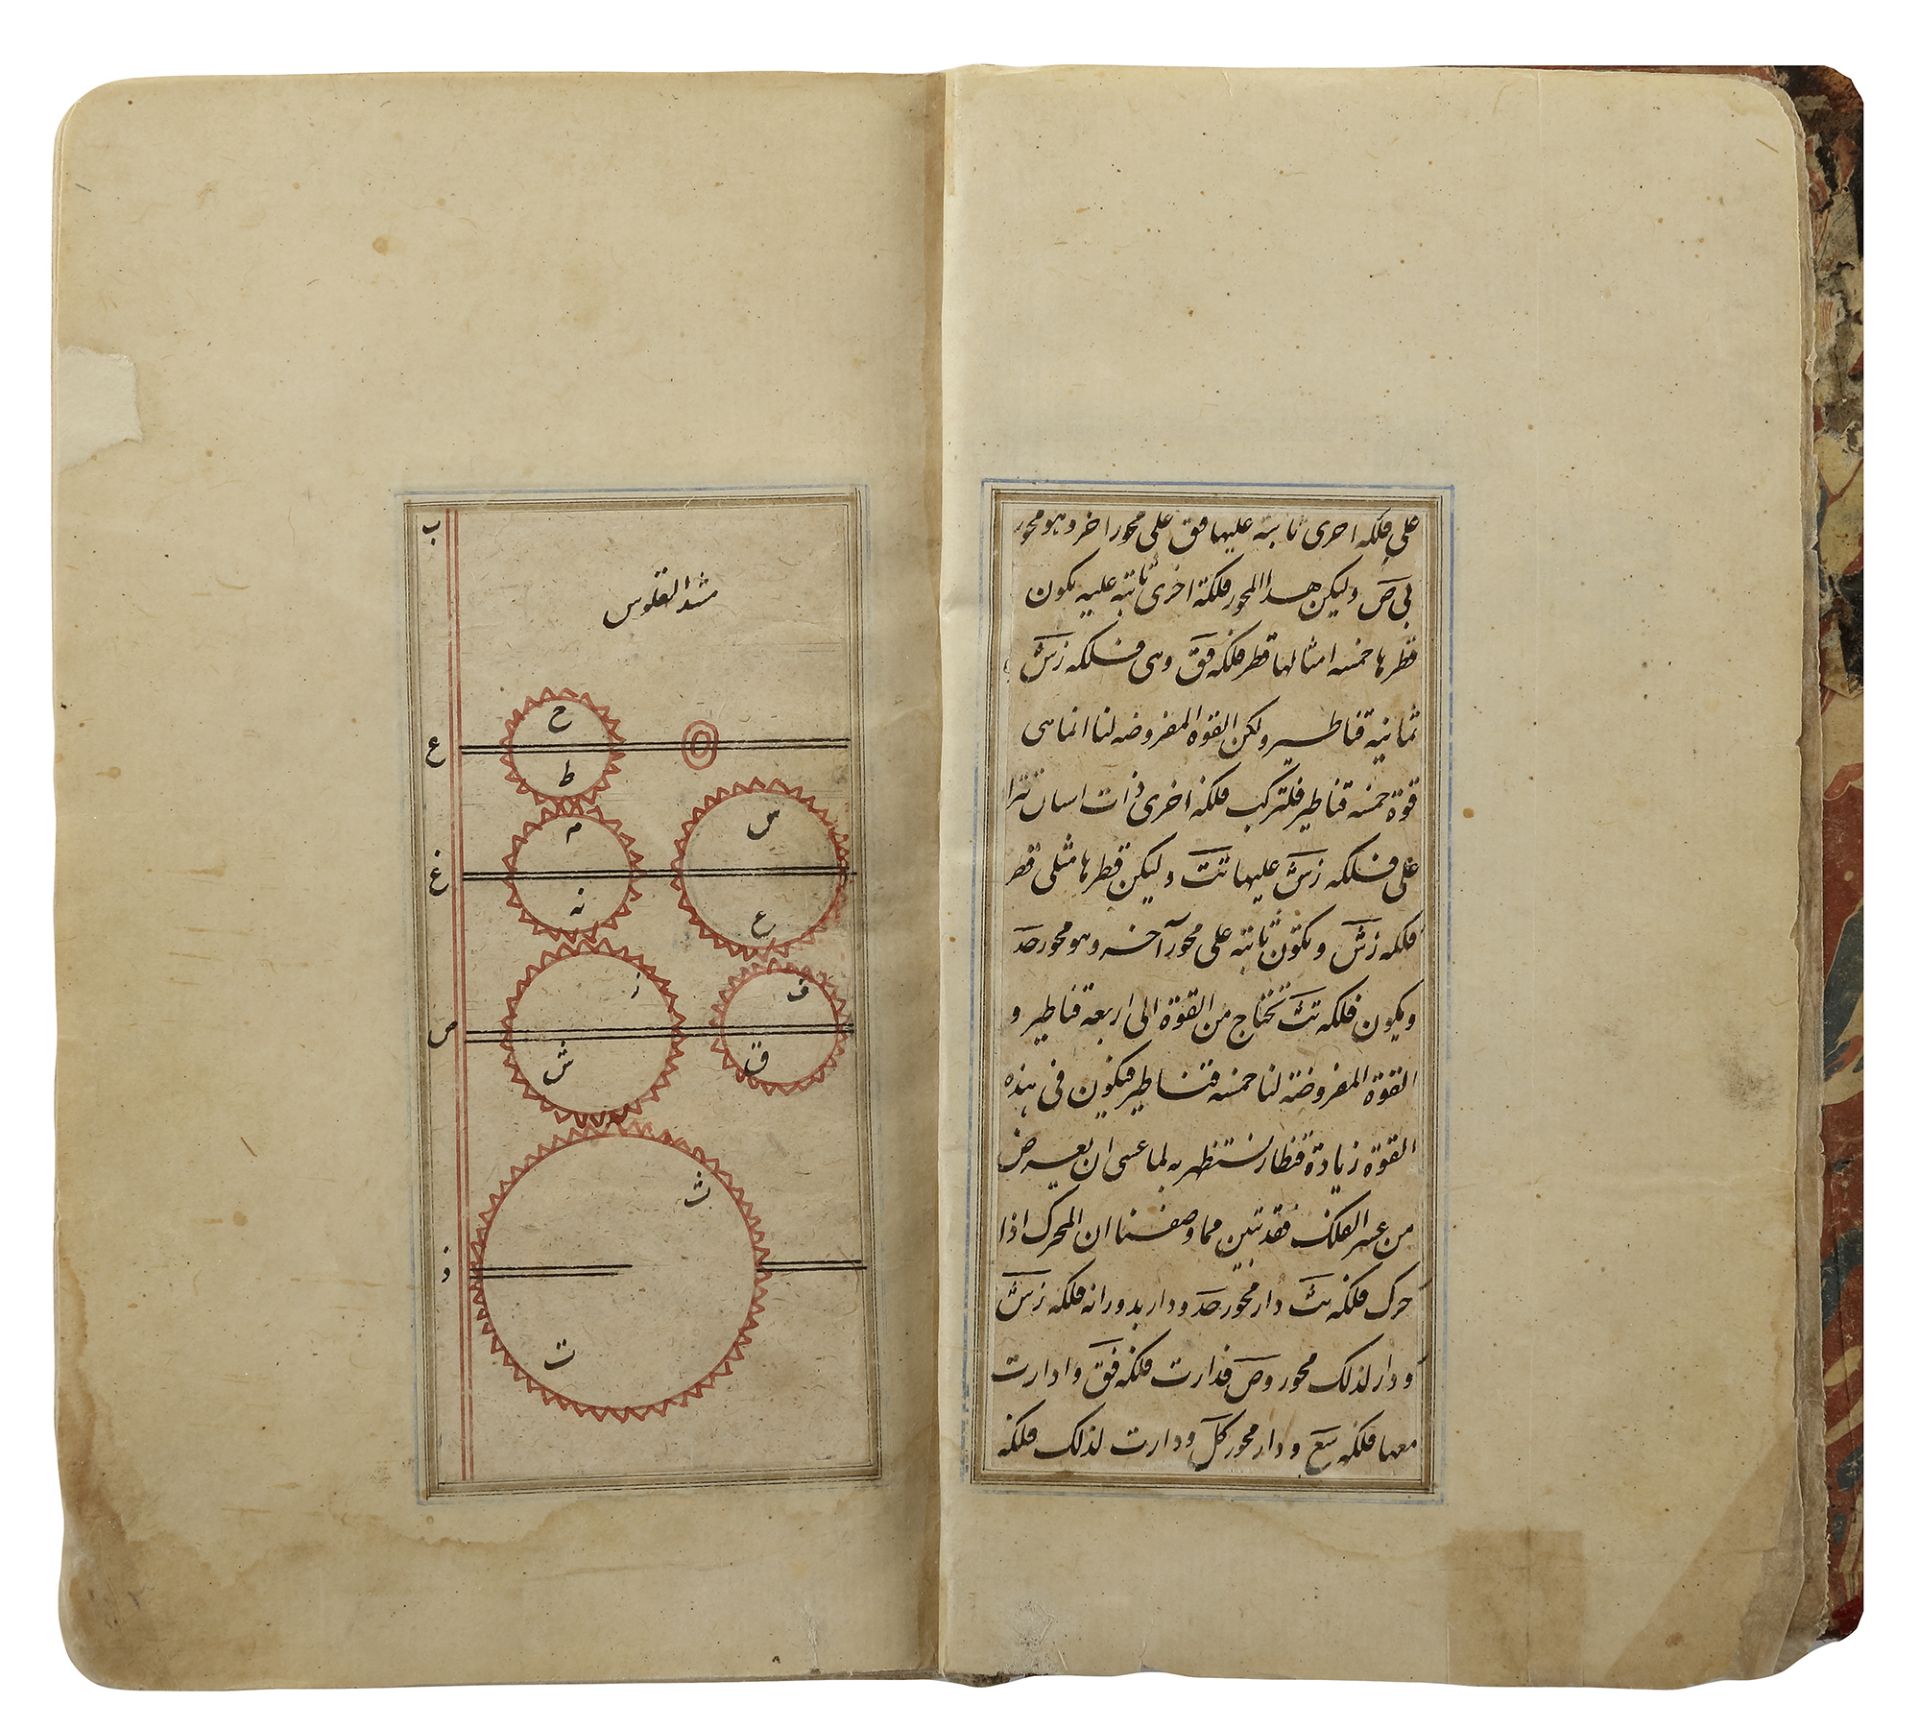 على فلكه اخرى ثابته عليها فق على محور اخر وهو محور
بى ص وليكن هذا المحور فلكة اخرى ثابته عليه يكون
قطرها خمسه امثالها قطر فلكه فق وهى فلكه زش
ثمانية قناطير ولكن القوه المفروضه لنا انما هى
قوة خمسه قناطير فلتركب فلكة اخرى ذات اسنان
على فلكه زش عليها تث وليكن قطرها مثلى قطر
فلكه زش وتكون ثابته على محور آخر وهو محور
ويكون فلكه تث تحتاج من القوة الى اربعة قناطير و
القوة المفروضة لنا خمسه قناطير فيكون فى هذه
القوة زيادة قنطار نستظهر به لما عسى ان يعرض
من عسر الفلك فقد تبين مما وصفنا ان المحرك اذا
حرك فلكة تث دار محور ودار بدورانه فلكة زش
ودار لذلك محور وص فدارت فلكة فق وادارت
معها فلكة سع ودار محور كل ودارت لذلك فلكة
ب
القلوس
ح
ع
ط
س
م
غ
نه
ع
ز
ف
ص
ش
ق
ث
ذ
ت